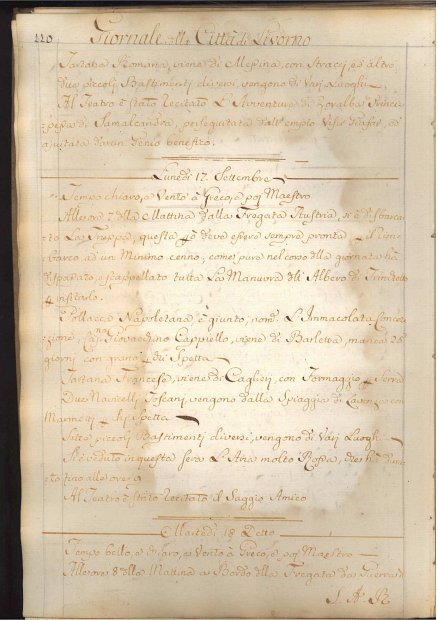 220 Giornale della Città di Livorno
Tartana Romana, viene di Messina, con Stracci ed altro
due piccoli Bastimenti diversi vengono di Varj Luoghi.
Al Teatro è stato Recitato L'Avventura di Zoralba Princi-
pessa di Samalcandra, perseguitata dall'empio Visir, ed
ajutata da un Genio benefico.
Lunedì 17. Settembre
Tempo chiaro, e Vento à Greco, e poi Maestro
Allesore 7 della Mattina dalla Fregata Austria, si è disbarca-
to La Truppa, questa deve essere sempre pronta
barco ad un Minimo cenno, come pure nel corso della giornata hà
disparato, e scappellato tutta La Manuvra dell'Albero di Trinchetto
Pollacca Napoletana è giunto, nom.a L'Immacolata Concez-
zione, Giovacchino Cappiello, viene di Barletta, manca 25
giorni con grano Spetta
Tartana Francese, viene di Caglieri, con Formaggio
Due Navicelli Toscani, vengono dalla Spiaggia di con
Marmi Spetta
Sette piccoli Bastimenti diversi, vengono di Varj Luoghi
Si è veduto in questa sera L'Aria molto Rossa,
to fino alle ore 9
Al Teatro è stato Recitato il Saggio Amico
Martedì 18 Detto
Tempo bello, e chiaro, e Vento à Greco, e poi Maestro
Allesore 8 della Mattina a Bordo della Fregata
S. A. R.